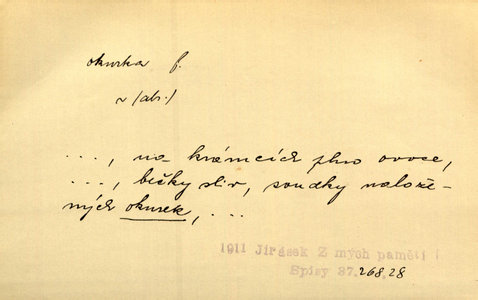 okurka f.
v (abs.)
..., na krámcích plno ovoce,
..., bečky sliv, soudky nalože-
ných okurek, ...
1911 Jirásek Z mých pamětí I
Spisy 37. 268.28